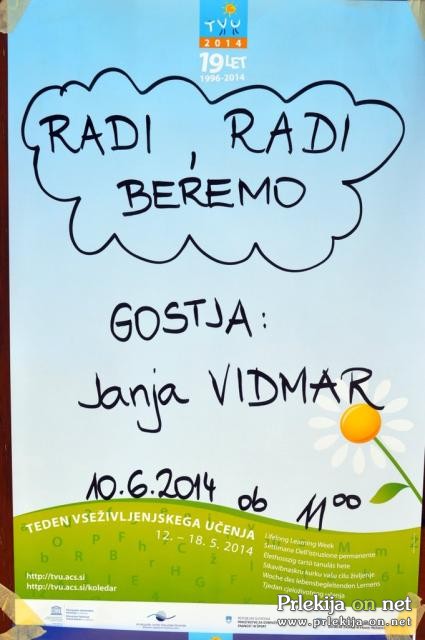 TVU
2014
19 LET
1996-2014
RADI, RADI
BEREMO
GOSTJA:
Janja VIDMAR
10.6.2014 ob 11 00
TEDEN VSEŽIVLJENJSKEGA UČENJA
12. – 18. 5. 2014
Lifelong Learning Week
Settimana Dell'istruzione permanente
Élethosszig tartó tanulás hete
Sikavibnaskru kurku vašu cilu živlenje
Woche des lebensbegleitenden Lernens
Tjedan cjeloživotnog učenja
http://tvu.acs.si
http://tvu.acs.si/koledar
Prlekija-on.net
www.prlekija-on.net